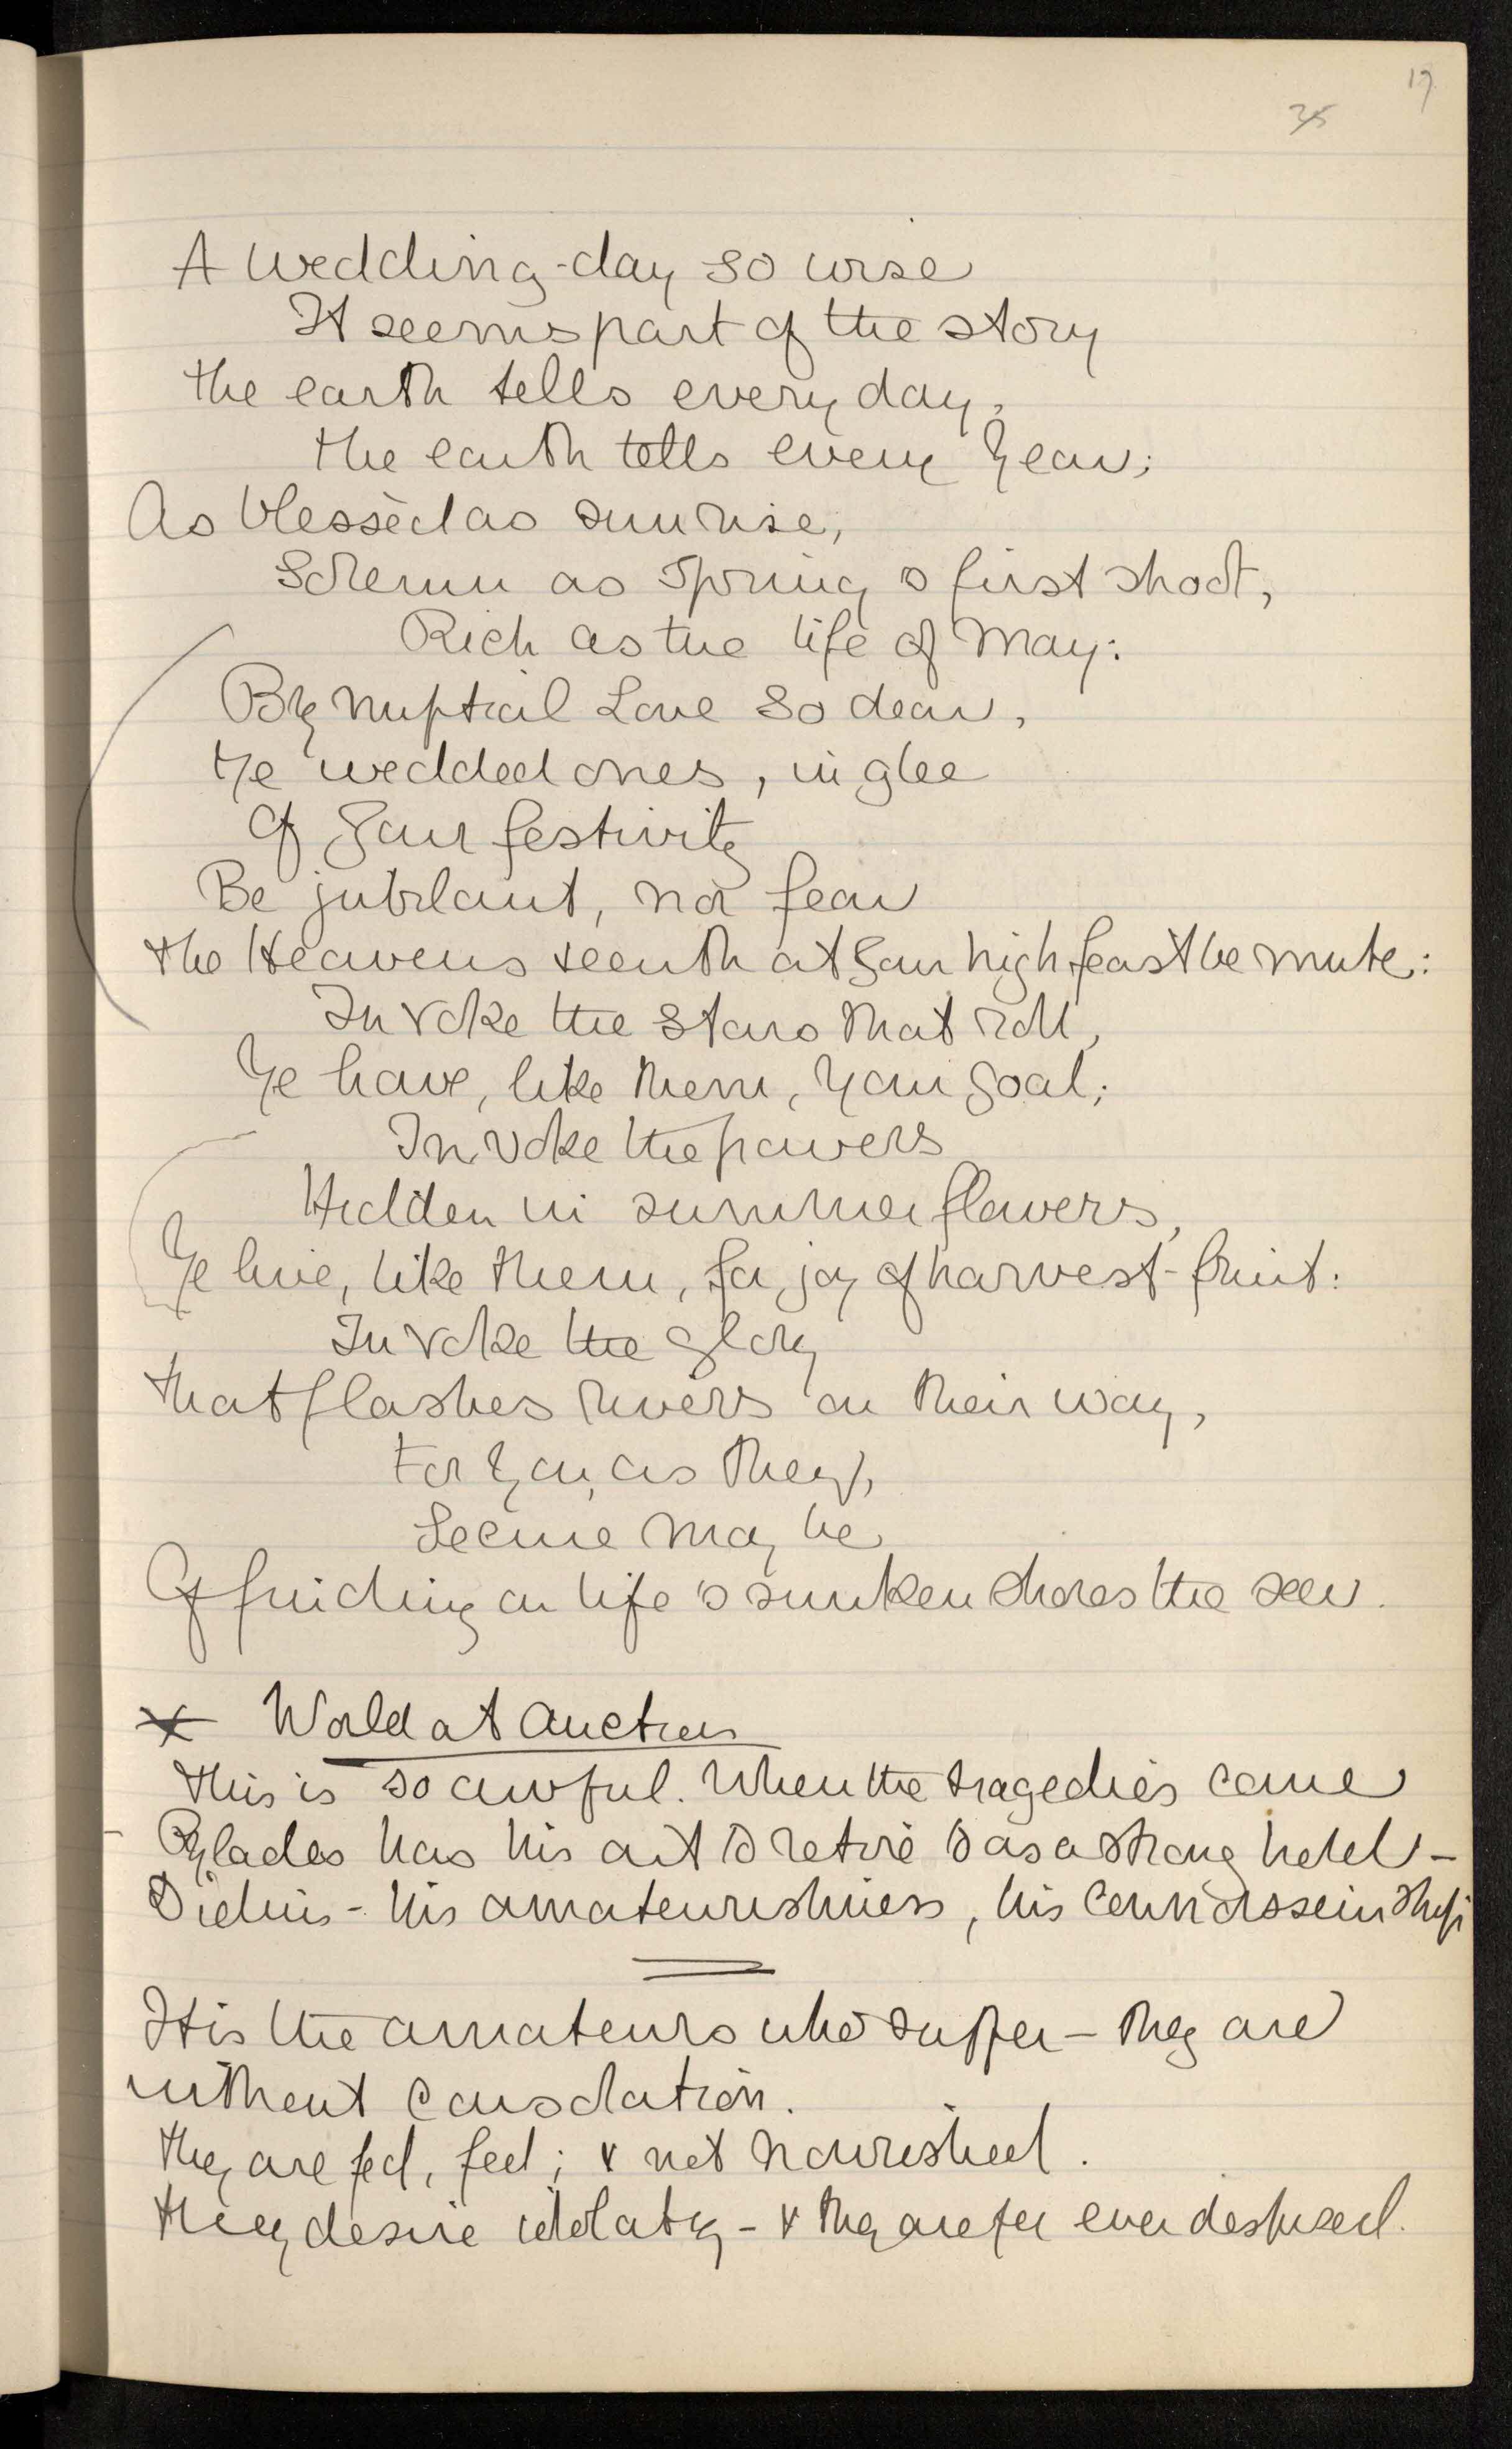 19
35
A wedding-day so wise
It seems part of the story
the earth tells every day,
the earth tells every year;
As blessèd as sunrise,
Solemn as Spring's first shoot,
Rich as the life of May:
By nuptial Love so dear,
Ye wedded ones, in glee
Of your festivity
Be jubilant, nor fear
the Heavens teenth at your high feast be mute:
Invoke the stars that roll,
Ye have, like them, your goal;
Invoke the powers
Hidden in summer flowers,
Ye live, like them, for joy of harvest-fruit:
Invoke the glory
that flashes rivers on their way,
For you, as they,
Secure may be
Of finding on life's sunken shores the sea.
x World at Auction
this is so awful. When the tragedies come
Pylades has his art to retire to as a strong hold -
Didius - his amateurishness, his connoisseurship
It is the amateurs who suffer - they are
without consolation.
they are fed, fed; & not nourished.
they desire idolatry - & they are for ever despised.